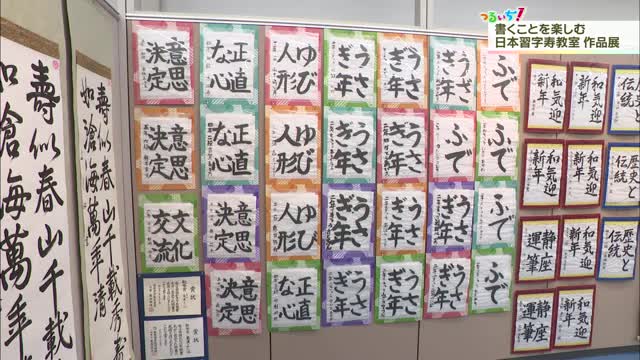 つるいち!
書くことを楽しむ
日本習字寿教室 作品展
壽似春山千載
如滄海萬年
壽似春山千載秀
如滄海萬年清
意思決定
正直な心
ゆび人形
うさぎ年
うさぎ年
うさぎ年
ふで
意思決定
正直な心
ゆび人形
うさぎ年
うさぎ年
ふで
ふで
文化交流
意思決定
ゆび人形
うさぎ年
うさぎ年
うさぎ年
ふで
賞状
賞状
意思決定
正直な心
うさぎ年
うさぎ年
うさぎ年
ふで
和気迎新年
和気迎新年
歴史と伝統
和気迎新年
和気迎新年
歴史と伝統
静座運筆
和気迎新年
歴史と伝統
静座運筆
和気迎新年